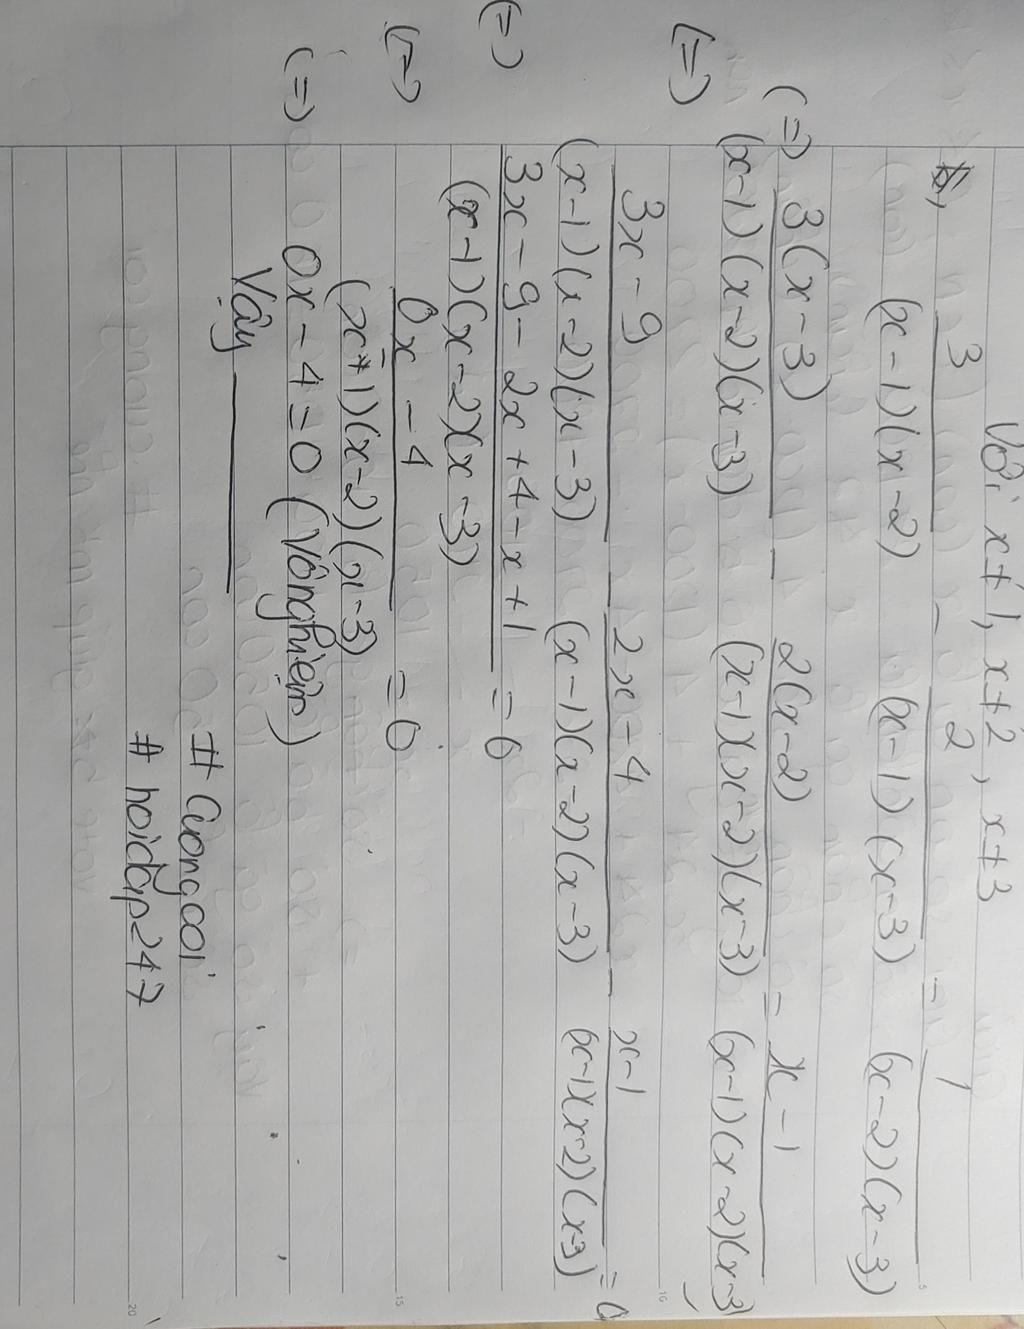 Với x≠1, x≠2, x≠3
b, 3/((x-1)(x-2)) - 2/((x-1)(x-3)) = 1/((x-2)(x-3))
(=) 3(x-3)/((x-1)(x-2)(x-3)) - 2(x-2)/((x-1)(x-2)(x-3)) = x-1/((x-1)(x-2)(x-3))
(=) 3x-9/((x-1)(x-2)(x-3)) - 2x-4/((x-1)(x-2)(x-3)) - x-1/((x-1)(x-2)(x-3)) = 0
(=) 3x-9-2x+4-x+1/((x-1)(x-2)(x-3)) = 0
(=) 0x-4/((x-1)(x-2)(x-3)) = 0
(=) 0x-4=0 (Vô nghiệm)
Vậy
# Cuongcoi
# hoidap247
5
10
15
20